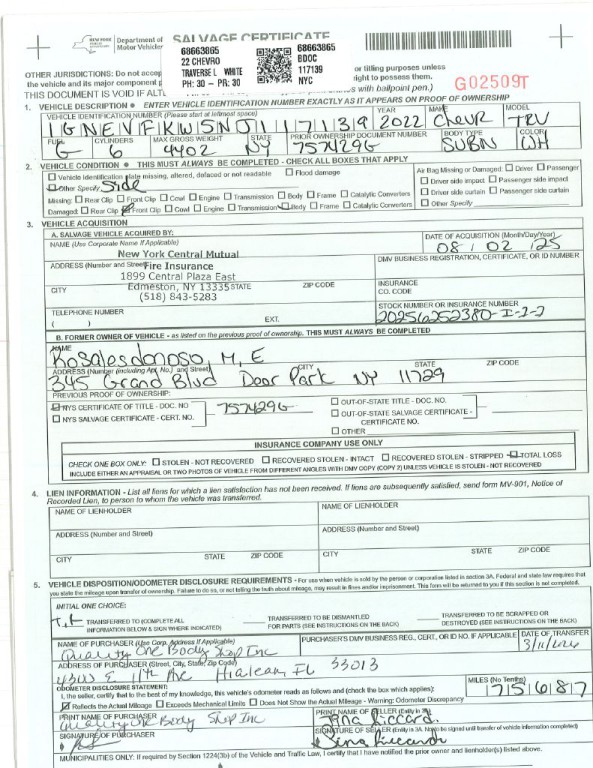 NEW YORK STATE Department of Motor Vehicles
SALVAGE CERTIFICATE
68663865
22 CHEVRO
TRAVERSE L WHITE
PH: 30 - PR: 30
68663865
BDOC
117139
NYC
OTHER JURISDICTIONS: Do not accep
or titling purposes unless
the vehicle and its major component p
right to possess them.
THIS DOCUMENT IS VOID IF ALT
with ballpoint pen.)
G02509T
1. VEHICLE DESCRIPTION ● ENTER VEHICLE IDENTIFICATION NUMBER EXACTLY AS IT APPEARS ON PROOF OF OWNERSHIP
VEHICLE IDENTIFICATION NUMBER (Please start at leftmost space) YEAR MAKE MODEL
1GNEVFKW5NJ117139 2022 Chevr TRV
FUEL CYLINDERS MAX GROSS WEIGHT STATE PRIOR OWNERSHIP DOCUMENT NUMBER BODY TYPE COLOR
G 6 4402 NY 757429G SUBN WH
2. VEHICLE CONDITION ● THIS MUST ALWAYS BE COMPLETED - CHECK ALL BOXES THAT APPLY
Vehicle identification plate missing, altered, defaced or not readable Flood damage
Air Bag Missing or Damaged: Driver Passenger
Other Specify Side
Driver side impact Passenger side impact
Missing: Rear Clip Front Clip Cowl Engine Transmission Body Frame Catalytic Converters
Driver side curtain Passenger side curtain
Damaged: Rear Clip Front Clip Cowl Engine Transmission Body Frame Catalytic Converters
Other Specify
3. VEHICLE ACQUISITION
A. SALVAGE VEHICLE ACQUIRED BY:
DATE OF ACQUISITION (Month/Day/Year)
08/02/25
NAME (Use Corporate Name If Applicable)
New York Central Mutual
DMV BUSINESS REGISTRATION, CERTIFICATE, OR ID NUMBER
ADDRESS (Number and Street)
Fire Insurance
1899 Central Plaza East
CITY Edmeston, NY 13335 STATE ZIP CODE
INSURANCE CO. CODE
(518) 843-5283
STOCK NUMBER OR INSURANCE NUMBER
20256252380-1-2-2
TELEPHONE NUMBER
( ) EXT.
B. FORMER OWNER OF VEHICLE - as listed on the previous proof of ownership. THIS MUST ALWAYS BE COMPLETED
NAME
Rosalesdonoso, M, E
ADDRESS (Number (Including Apt. No.) and Street) CITY STATE ZIP CODE
345 Grand Blvd Deer Park NY 11729
PREVIOUS PROOF OF OWNERSHIP:
NYS CERTIFICATE OF TITLE - DOC. NO 757429G
OUT-OF-STATE TITLE - DOC. NO.
NYS SALVAGE CERTIFICATE - CERT. NO.
OUT-OF-STATE SALVAGE CERTIFICATE - CERTIFICATE NO.
OTHER
INSURANCE COMPANY USE ONLY
CHECK ONE BOX ONLY: STOLEN - NOT RECOVERED RECOVERED STOLEN - INTACT RECOVERED STOLEN - STRIPPED TOTAL LOSS
INCLUDE EITHER AN APPRAISAL OR TWO PHOTOS OF VEHICLE FROM DIFFERENT ANGLES WITH DMV COPY (COPY 2) UNLESS VEHICLE IS STOLEN - NOT RECOVERED
4. LIEN INFORMATION - List all liens for which a lien satisfaction has not been received. If liens are subsequently satisfied, send form MV-901, Notice of
Recorded Lien, to person to whom the vehicle was transferred.
NAME OF LIENHOLDER NAME OF LIENHOLDER
ADDRESS (Number and Street) ADDRESS (Number and Street)
CITY STATE ZIP CODE CITY STATE ZIP CODE
5. VEHICLE DISPOSITION/ODOMETER DISCLOSURE REQUIREMENTS - For use when vehicle is sold by the person or corporation listed in section 3A. Federal and state law requires that
you state the mileage upon transfer of ownership. Failure to do so, or not telling the truth about mileage, may result in fines and/or imprisonment. This form will be returned to you if this section is not completed.
INITIAL ONE CHOICE:
TRANSFERRED TO (COMPLETE ALL INFORMATION BELOW & SIGN WHERE INDICATED)
TRANSFERRED TO BE DISMANTLED FOR PARTS (SEE INSTRUCTIONS ON THE BACK)
TRANSFERRED TO BE SCRAPPED OR DESTROYED (SEE INSTRUCTIONS ON THE BACK)
NAME OF PURCHASER (Use Corp. Address if Applicable) PURCHASER'S DMV BUSINESS REG., CERT., OR ID NO. IF APPLICABLE DATE OF TRANSFER
Quality One Body Shop Inc 3/11/2026
ADDRESS OF PURCHASER (Street, City, State, Zip Code)
4300 E 11th Ave Hialeah, FL 33013
ODOMETER DISCLOSURE STATEMENT: MILES (No Tenths)
I, the seller, certify that to the best of my knowledge, this vehicle's odometer reads as follows and (check the box which applies): 175687
Reflects the Actual Mileage Exceeds Mechanical Limits Does Not Show the Actual Mileage - Warning: Odometer Discrepancy
PRINT NAME OF PURCHASER PRINT NAME OF SELLER (Entity in 3A)
Quality One Body Shop Inc Tina Riccardi
SIGNATURE OF PURCHASER SIGNATURE OF SELLER (Entity in 3A. Not to be signed until transfer of vehicle information completed)
Tina Riccardi
MUNICIPALITIES ONLY: If required by Section 1224(3b) of the Vehicle and Traffic Law, I certify that I have notified the prior owner and lienholder(s) listed above.